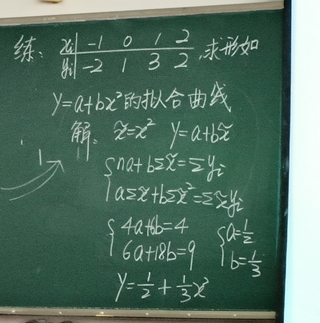 练: xi -1 0 1 2 ,求形如
yi -2 1 3 2
y=a+bx²的拟合曲线
解: x̃=x² y=a+bx̃
{na+bΣx̃=Σyi
{aΣx̃+bΣx̃²=Σx̃yi
{4a+6b=4 {a=1/2
{6a+18b=9 {b=1/3
y=1/2+1/3x²